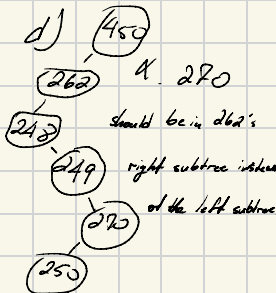 d)
450
262
X. 270
248
should be in 262's
249
right subtree instead
270
of the left subtree
250